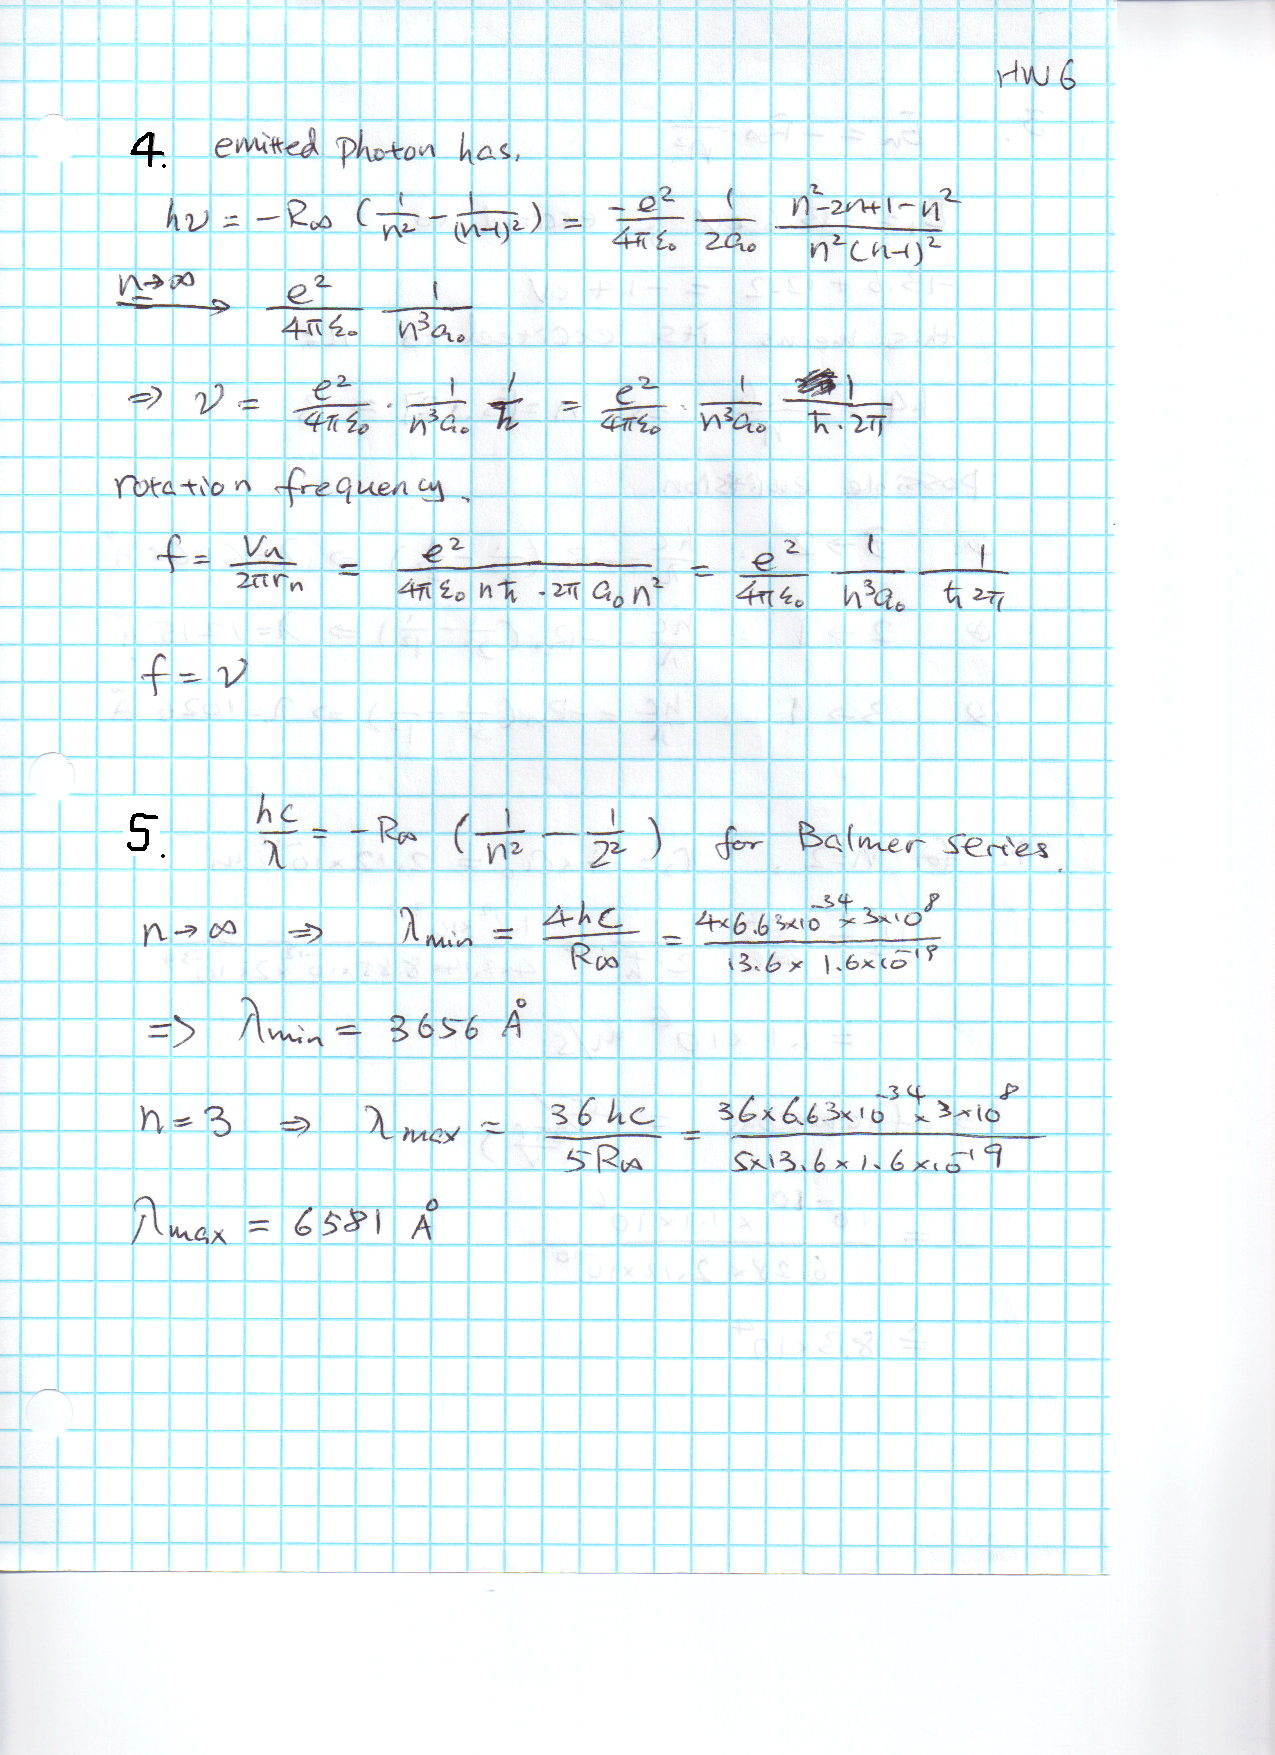 HW 6
4. emitted photon has,
hν = -R∞ (1/n² - 1/(n-1)²) = -e²/4πε₀ 1/2a₀ n²-2n+1-n²/n²(n-1)²
n→∞ ⟶ e²/4πε₀ 1/n³a₀
⇒ ν = e²/4πε₀ · 1/n³a₀ 1/h = e²/4πε₀ · 1/n³a₀ 1/ħ·2π
rotation frequency.
f = Vn/2πrn = e²/4πε₀ nħ · 2π a₀ n² = e²/4πε₀ 1/n³a₀ 1/ħ 2π
f = ν
5. hc/λ = -R∞ (1/n² - 1/2²) for Balmer series.
n→∞ ⇒ λmin = 4hc/R∞ = 4×6.63×10⁻³⁴×3×10⁸/13.6×1.6×10⁻¹⁹
=> λmin = 3656 Å
n=3 ⇒ λmax = 36hc/5R∞ = 36×6.63×10⁻³⁴×3×10⁸/5×13.6×1.6×10⁻¹⁹
λmax = 6581 Å